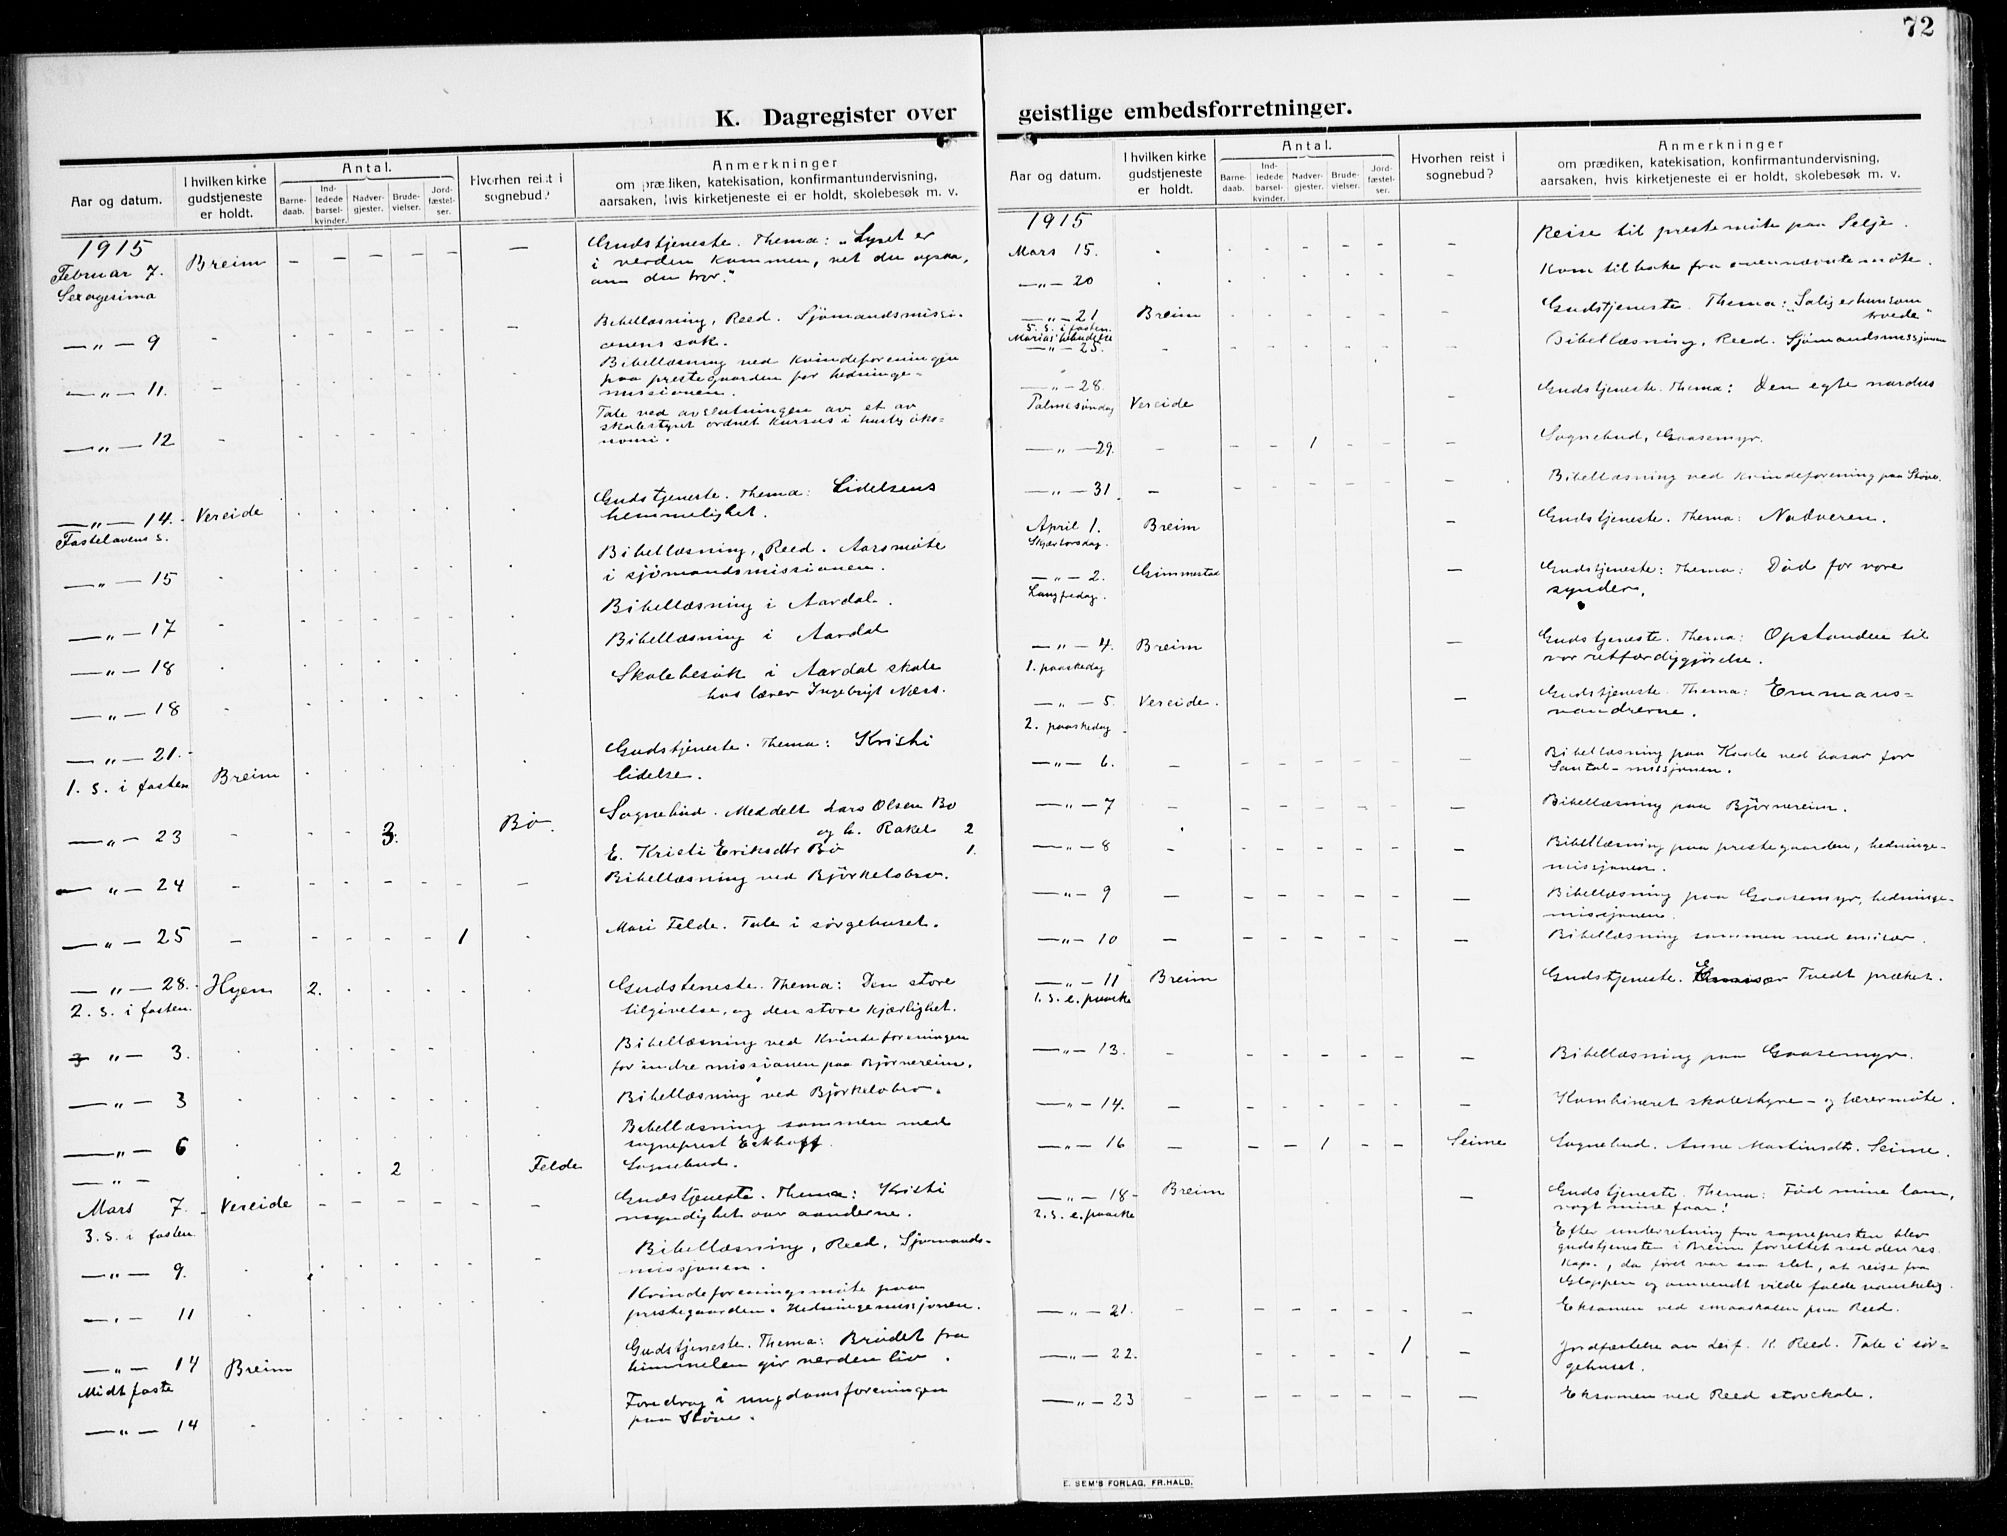 72
K. Dagregister over geistlige embedsforretninger.
Aar og datum.
I hvilken kirke gudstjeneste er holdt.
Antal.
Barnedaab.
Indledede barselkvinder.
Nadvergjester.
Brudevielser.
Jordfæstelser.
Hvorhen reist i sognebud?
Anmerkninger
om prædiken, katekisation, konfirmantundervisning,
aarsaken, hvis kirketjeneste ei er holdt, skolebesøk m. v.
1915
Februar 7. Breim – – – – – – Gudstjeneste. Thema: "Lyset er
Sexagesima i verden kommen, vet du ogsaa,
om du tror."
–"– 9 Bibellæsning, Reed. Sjømandsmissi-
onens sak.
–"– 11. Bibellæsning ved kvindeforeningen
paa prestegaarden for hedninge-
missionen.
–"– 12 Tale ved avslutningen av et av
skolestyret ordnet kursus i huslig øko-
nomi.
–"– 14. Vereide Gudstjeneste. Thema: Lidelsens
Fastelavens s. hemmelighet.
–"– 15 Bibellæsning, Reed. Aarsmøte
i sjømandsmissionen.
–"– 17 Bibellæsning i Aardal.
–"– 18 Bibellæsning i Aardal
–"– 18 Skolebesøk i Aardal skole
hos lærer Ingebrigt Næss.
–"– 21. Gudstjeneste. Thema: Kristi
1. s. i fasten Breim lidelse.
–"– 23 3. Bø. Sognebud. Meddelt Lars Olsen Bø
og h. Rakel 2
E. Kristi Eriksdtr Bø 1.
–"– 24 Bibellæsning ved Bjørkelobro.
–"– 25 1 Mari Felde. Tale i sørgehuset.
–"– 28. Hyen 2. Gudsteneste. Thema: Den store
2. s. i fasten. tilgivelse, og den store kjærlighet.
3 "– 3. Bibellæsning ved Kvindeforeningen
for indre missionen paa Bjørnereim.
–"– 3 Bibellæsning ved Bjørkelobro.
–"– 6 Bibellæsning sammen med
sogneprest Eckhoff.
–"– 2 Felde Sognebud.
Mars 7. Vereide Gudstjeneste. Thema: Kristi
3. s. i fasten. myndighet over aanderne.
–"– 9. Bibellæsning, Reed, Sjømands-
missjonen.
–"– 11 Kvindeforeningsmøte paa
prestegaarden. Hedningemissjonen.
–"– 14 Breim Gudstjeneste. Thema: Brødet fra
Midtfaste himmelen gir verden liv.
–"– 14 Foredrag i ungdomsforeningen
paa Støve.
Aar og datum.
I hvilken kirke gudstjeneste er holdt.
Antal.
Barnedaab.
Indledede barselkvinder.
Nadvergjester.
Brudevielser.
Jordfæstelser.
Hvorhen reist i sognebud?
Anmerkninger
om prædiken, katekisation, konfirmantundervisning,
aarsaken, hvis kirketjeneste ei er holdt, skolebesøk m. v.
1915
Mars 15. Reise til prestemøte paa Selje.
–"– 20 Kom tilbake fra ovennævnte møte.
–"– 21 Breim Gudstjeneste. Thema: "Salig er hun som
5. s. i fasten. trode"
Marias bebudelse
–"– 25. Bibellæsning, Reed. Sjømandsmissjonen
–"– 28. Gudstjeneste. Thema: Den egte nardus
Palmesøndag Vereide
–"– 29. 1 Sognebud, Gaasemyr.
–"– 31. Bibellæsning ved Kvindeforening paa Støve.
April 1. Breim Gudstjeneste. Thema: Nadveren.
Skjærtorsdag.
–"– 2. Gimmestad Gudstjeneste: Thema: Død for vore
Langfredag. synder.
–"– 4. Breim Gudstjeneste. Thema: Opstanden til
1. paaskedag vor retfærdiggjørelse.
–"– 5. Vereide. Gudstjeneste. Thema: Emmaus-
2. paaskedag vandrerne.
–"– 6. Bibellæsning paa Kaale ved basar for
Santal-missjonen.
–"– 7 Bibellæsning paa Bjørnereim.
–"– 8 Bibellæsning paa prestegaarden, hedninge-
missjonen.
–"– 9 Bibellæsning paa Gaasemyr, hedninge-
missjonen.
–"– 10 Bibellæsning sammen med emisær.
–"– 11 Breim Gudstjeneste. Emisær Tvedt præket.
1. s. e. paaske
–"– 13. Bibellæsning paa Gaasemyr.
–"– 14. Kombineret skolestyre- og lærermøte.
–"– 16 1 Seime Sognebud. Anne Martinsdtr. Seime.
–"– 18 Breim Gudstjeneste. Thema: Fød mine lam,
2. s. e. paaske vogt mine faar!
Efter underretning fra sognepresten blev
gudstjenesten i Breim forrettet ved den res.
Kap., da føret var saa slet, at reise fra
Gloppen og omvendt vilde falde vanskelig.
–"– 21. Eksamen ved smaaskolen paa Reed.
–"– 22. 1 Jordfæstelse av Leif K. Reed. Tale i sør-
gehuset.
–"– 23 Eksamen ved Reed storskole.
E. SEM'S FORLAG, FR.HALD.